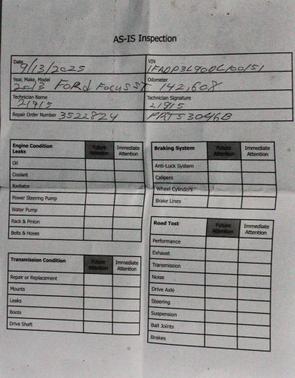 AS-IS Inspection
Date 9/13/2025
VIN
Year, Make, Model 2013 Ford Focus ST
Odometer 142,608
Technician Name 21915
Technician Signature 21915
Repair Order Number 3522824
Engine Condition Future Attention Immediate Attention
Leaks
Oil
Coolant
Radiator
Power Steering Pump
Water Pump
Rack & Pinion
Belts & Hoses
Braking System Future Attention Immediate Attention
Anti-Lock System
Calipers
Wheel Cylinders
Brake Lines
Transmission Condition Future Attention Immediate Attention
Repair or Replacement
Mounts
Leaks
Boots
Drive Shaft
Road Test Future Attention Immediate Attention
Performance
Exhaust
Transmission
Noise
Drive Axle
Steering
Suspension
Ball Joints
Brakes